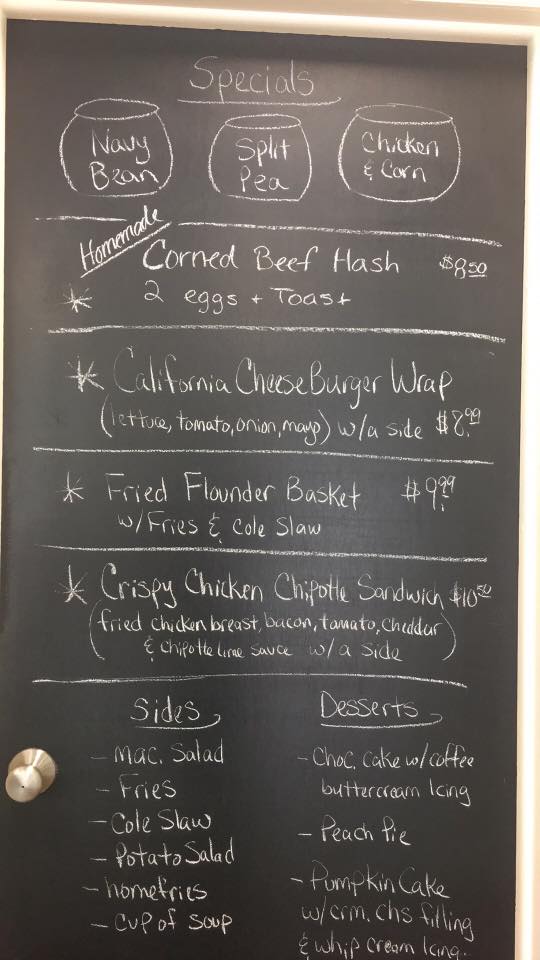 Specials
Navy
Bean
Split
Pea
Chicken
& Corn
Homemade
Corned Beef Hash $8.50
* 2 eggs + Toast
* California CheeseBurger Wrap
(lettuce, tomato, onion, mayo) w/a side $8.99
* Fried Flounder Basket $9.99
w/Fries & Cole Slaw
* Crispy Chicken Chipotle Sandwich $10.50
(fried chicken breast, bacon, tomato, cheddar
& chipotle lime sauce w/a side)
Sides
- Mac. Salad
- Fries
- Cole Slaw
- Potato Salad
- homefries
- cup of soup
Desserts
- Choc. Cake w/coffee
buttercream Icing
- Peach Pie
- Pumpkin Cake
w/crm. chs filling
& whip cream Icing.